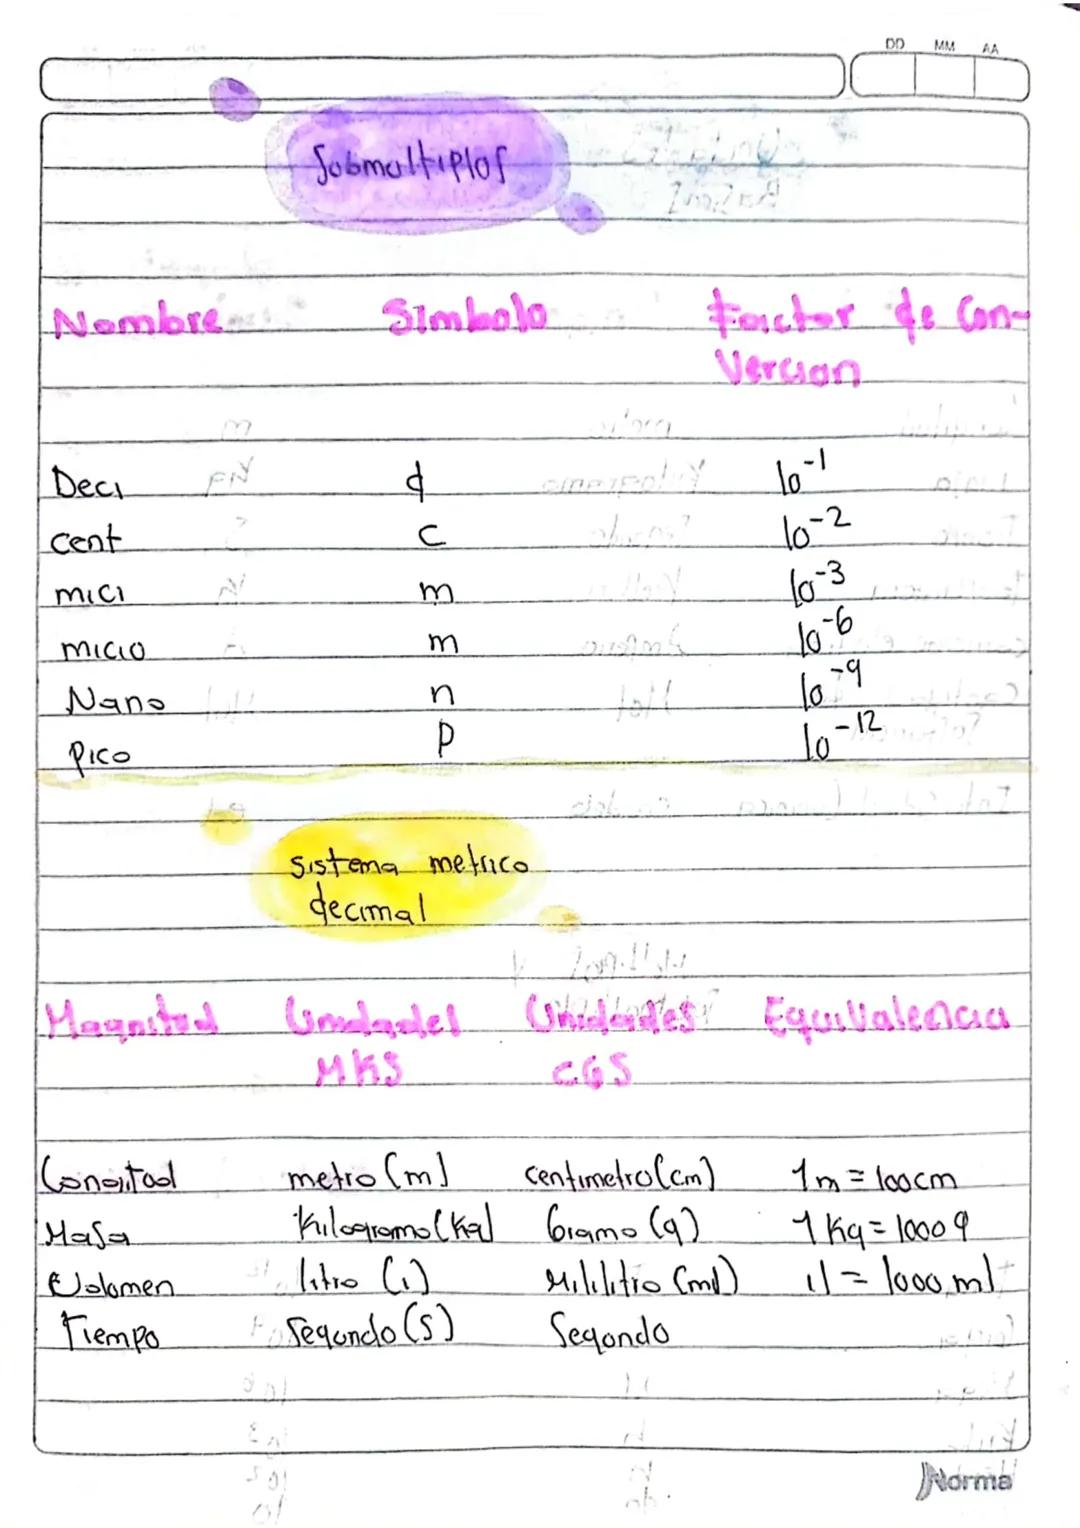 DD MM AA
Submultiplos
Nombre Simbolo Factor de Con-
Version
Deci d 10-1
cent c 10-2
mici m 10-3
micio m 10-6
Nano n 10-9
pico p 10-12
sistema metrico
decimal
Magnitud Unidades Unidades Equivalencia
MKS CGS
metro (m) centimetro (cm) 1m = 100cm
Masa Kilogramo (Kg) Gramo (g) 1 Kg = 1000 g
Volumen litro (l) Mililitro (ml) 1l = 1000 ml
Tiempo Segundo (s) Segundo
Norma